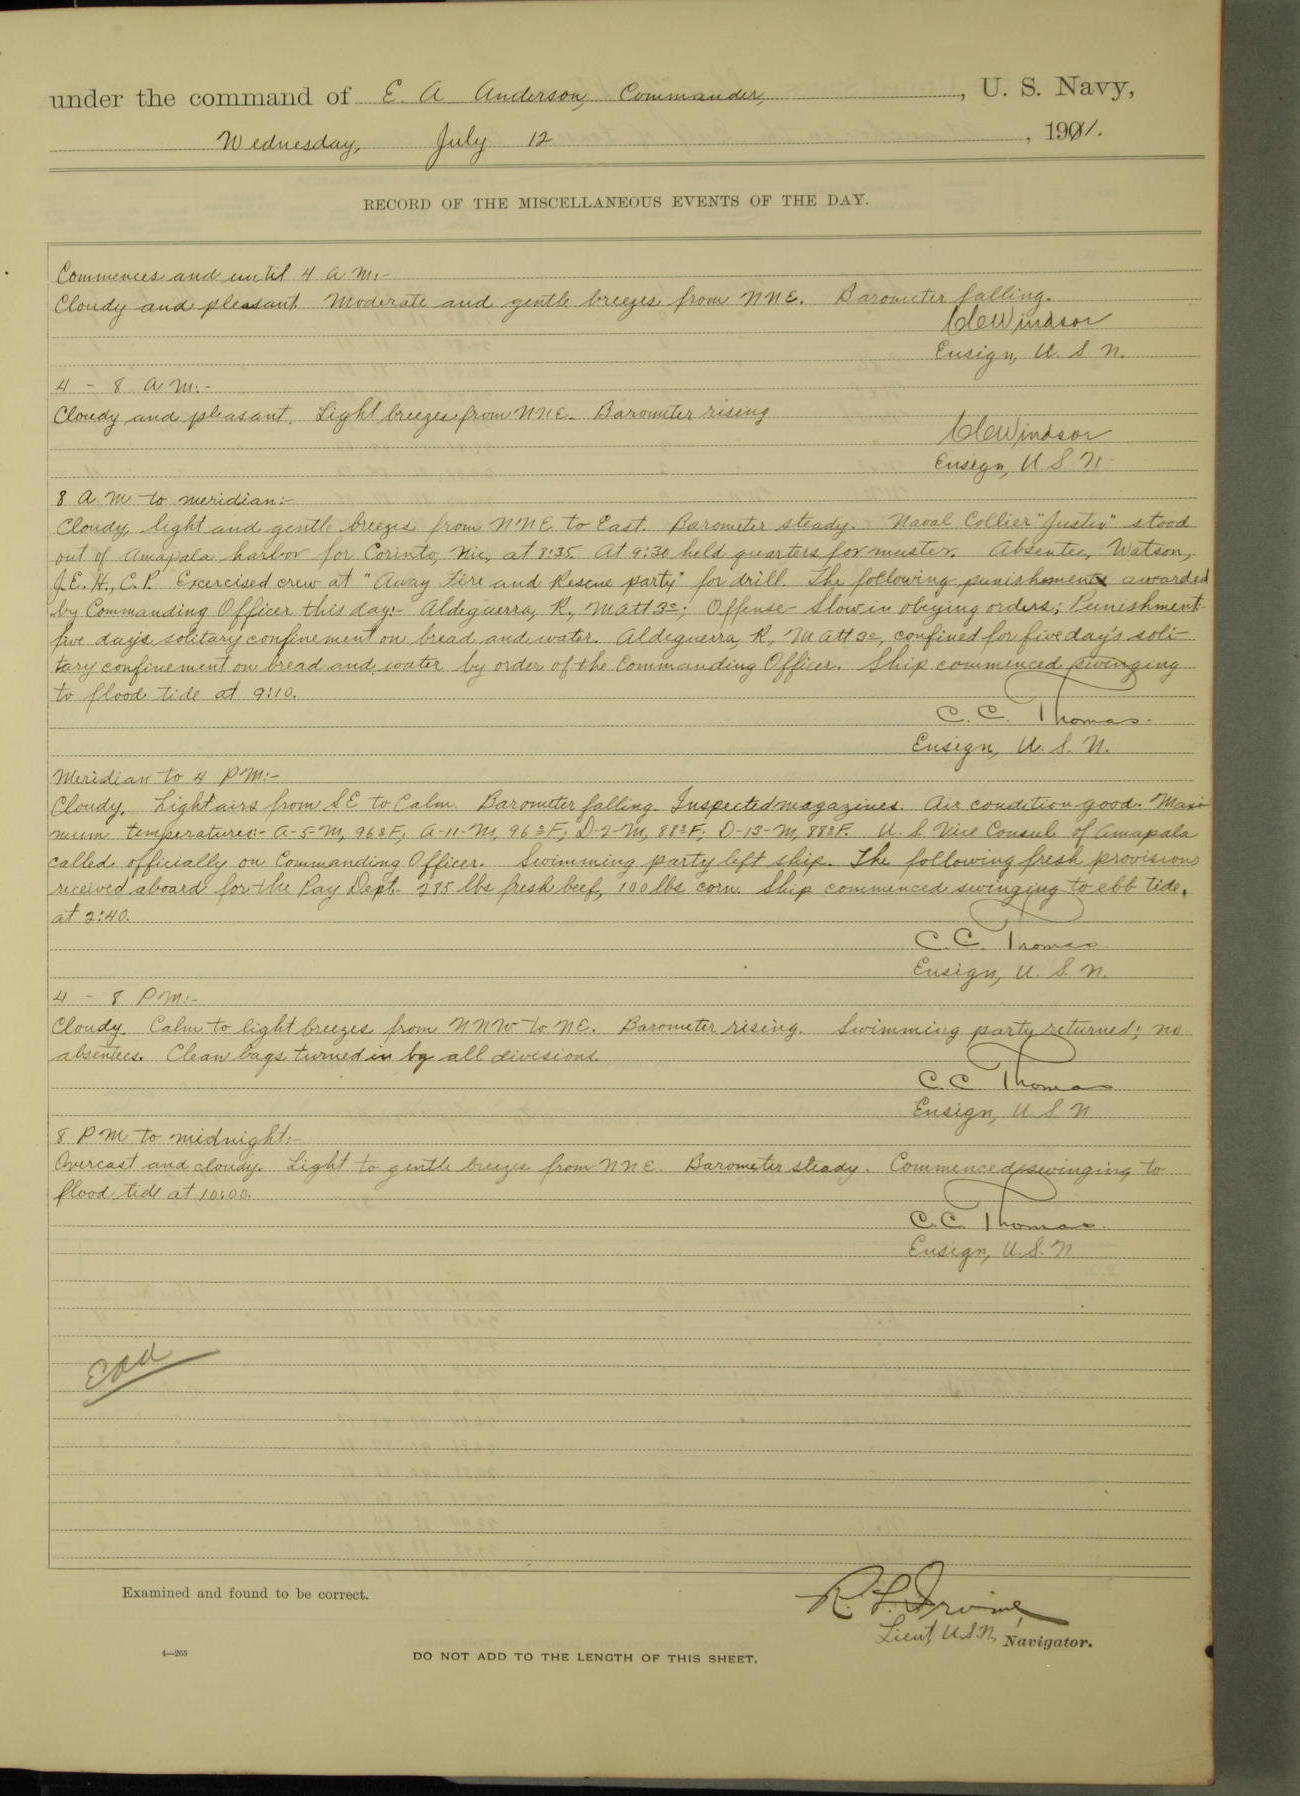 under the command of E. A Anderson, Commander, , U. S. Navy,
Wednesday, July 12 , 1911.
RECORD OF THE MISCELLANEOUS EVENTS OF THE DAY.
Commences and until 4 A M:-
Cloudy and pleasant. Moderate and gentle breezes from NNE. Barometer falling.
Windsor
Ensign, U. S N.
4 - 8 A M:-
Cloudy and pleasant. Light breezes from NNE. Barometer rising
Windsor
Ensign, U. S N
8 A M to meridian:-
Cloudy, light and gentle breezes from NNE to East. Barometer steady. Naval Collier "Justin" stood
out of Amapala harbor for Corinto, Nic, at 8:35 At 9:30 held quarters for muster. Absentee, Watson,
J.E.H., C.P. Excercised crew at "Away Fire and Rescue party" for drill. The following punishment awarded
by Commanding Officer this day:- Aldeguerra, R, Matt 3c; Offense- Slow in obeying orders; Punishment-
five day's solitary confinement on bread and water. Aldeguerra, R, Matt 3c, confined for five day's soli-
tary confinement on bread and water by order of the Commanding Officer. Ship commenced swinging
to flood tide at 9:10.
C. C. Thomas.
Ensign, U. S. N.
Meridian to 4 P M:-
Cloudy. Light airs from SE to Calm. Barometer falling. Inspected magazines. Air condition good. Maxi-
mum temperatures:- A-5-M, 96°F; A-11-M, 96°F; D-2-M, 88°F; D-13-M, 88°F. U. S Vice Consul of Amapala
called officially on Commanding Officer. Swimming party left ship. The following fresh provisions
received aboard for the Pay Dept- 285 lbs fresh beef, 100 lbs corn. Ship commenced swinging to ebb tide.
at 2:40.
C. C. Thomas
Ensign, U. S. N.
4 - 8 P M:-
Cloudy. Calm to light breezes from NNW to NE. Barometer rising. Swimming party returned; no
absentees. Clean bags turned in by all divisions.
C. C. Thomas
Ensign, U S N
8 P M to midnight:-
Overcast and cloudy. Light to gentle breezes from NNE. Barometer steady. Commenced swinging to
flood tide at 10:00.
C. C. Thomas.
Ensign, U. S. N
Examined and found to be correct.
R. L. Irvine,
Lieut, U.S.N, Navigator.
4—265
DO NOT ADD TO THE LENGTH OF THIS SHEET.